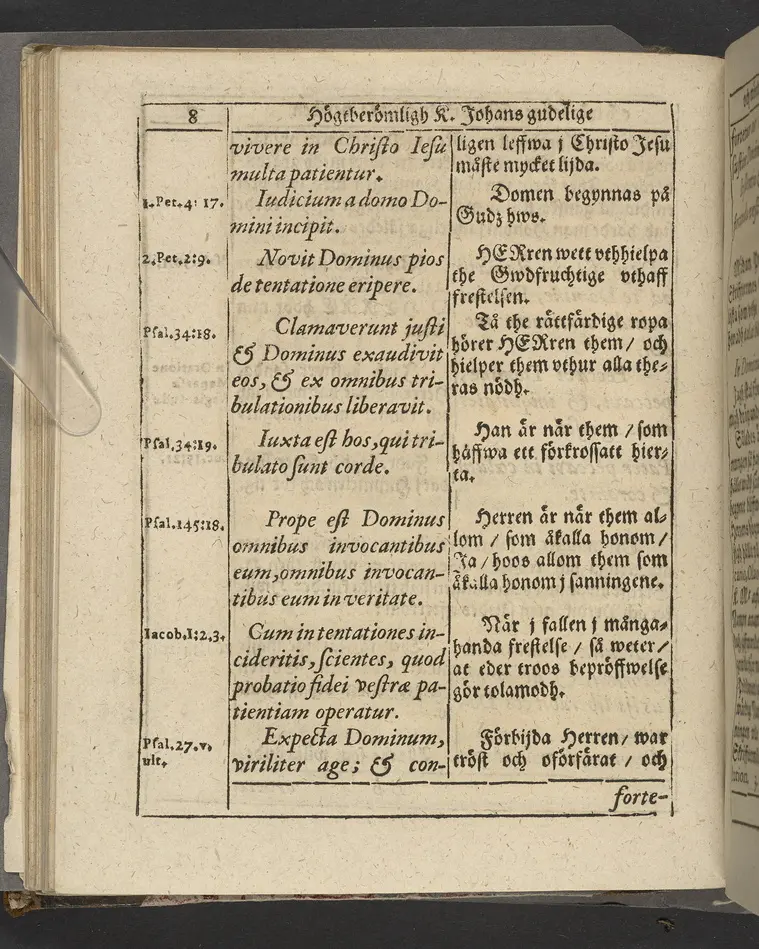 8
Högtberömligh K. Johans gudelige
vivere in Christo Iesu
multa patientur.
1. Pet. 4: 17.
Iudicium a domo Do-
mini incipit.
2. Pet. 2:9.
Novit Dominus pios
de tentatione eripere.
Psal. 34:18.
Clamaverunt justi
& Dominus exaudivit
eos, & ex omnibus tri-
bulationibus liberavit.
Psal. 34:19.
Iuxta est hos, qui tri-
bulato sunt corde.
Psal. 145:18.
Prope est Dominus
omnibus invocantibus
eum, omnibus invocan-
tibus eum in veritate.
Iacob. I: 2. 3.
Cum in tentationes in-
cideritis, scientes, quod
probatio fidei vestræ pa-
tientiam operatur.
Psal. 27. v.
ult.
Expecta Dominum,
viriliter age; & con-
ligen leffwa j Christo Jesu
måste mycket lijda.
Domen begynnas på
Gudz hws.
HERren wett vthhielpa
the Gwdfruchtige vthaff
frestelsen.
Tå the rättfärdige ropa
hörer HERren them / och
hielper them vthur alla the-
ras nödh.
Han är når them / som
håffwa ett förkrossatt hier-
ta.
Herren är når them al-
lom / som åkalla honom /
Ja / hoos allom them som
åkalla honom j sanningene.
När j fallen j många-
handa frestelse / så weter /
at eder troos bepröffwelse
gör tolamodh.
Förbijda Herren / war
tröst och oförfärat / och
forte-